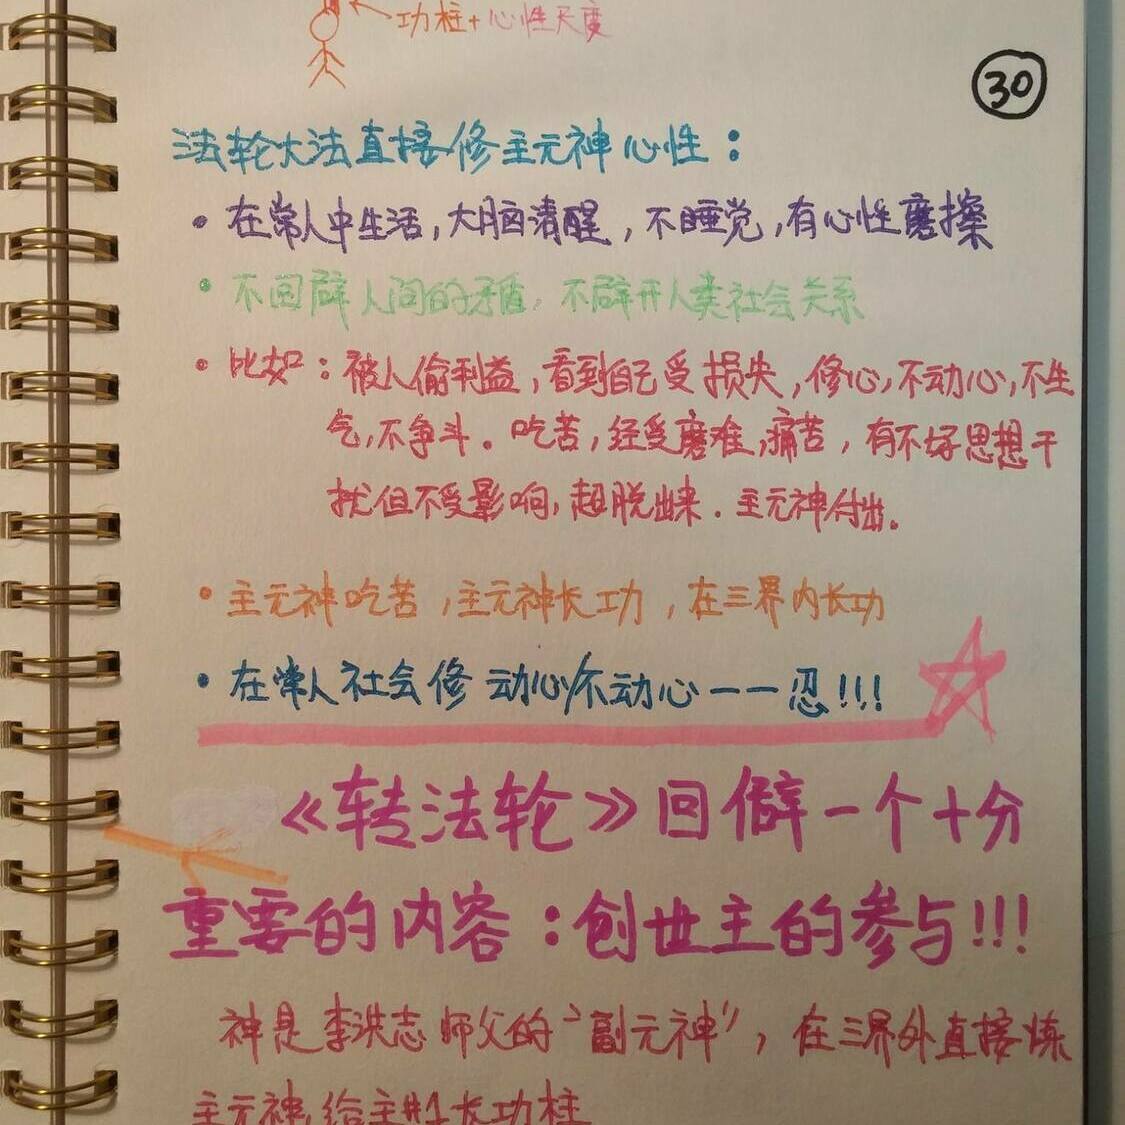 功柱+心性尺度
30
法轮大法直接修主元神心性：
• 在常人中生活，大脑清醒，不睡觉，有心性磨擦
• 不回避人间的矛盾，不避开人类社会关系
• 比如：被人偷利益，看到自己受损失，修心，不动心，不生
气，不争斗。吃苦，经受磨难，痛苦，有不好思想干
扰但不受影响，超脱出来．主元神付出。
• 主元神吃苦，主元神长功，在三界内长功
• 在常人社会修 动心/不动心——忍!!!
《转法轮》回僻一个十分
重要的内容：创世主的参与!!!
神是李洪志师父的“副元神”，在三界外直接炼
主元神，给主#1长功柱